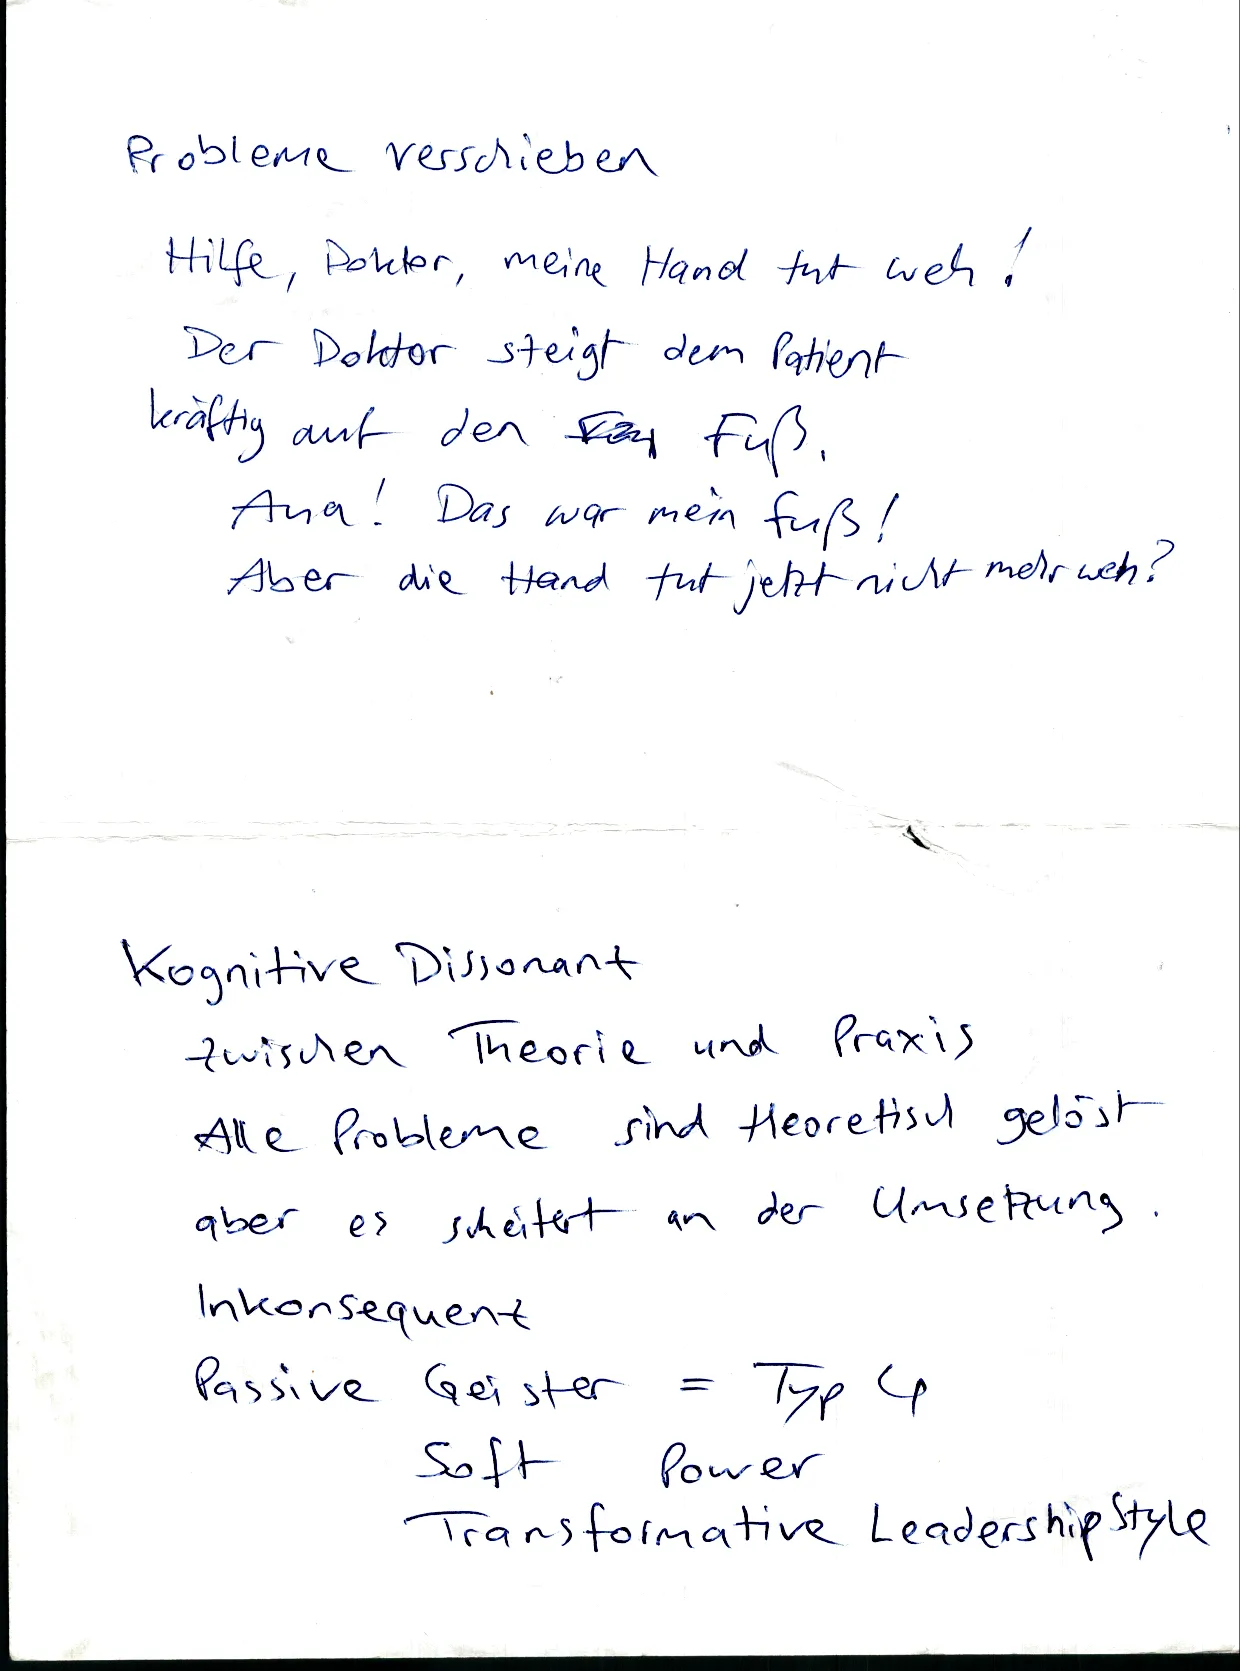 Probleme verschieben
Hilfe, Doktor, meine Hand tut weh!
Der Doktor steigt dem Patient
kräftig auf den Fuß.
Aua! Das war mein Fuß!
Aber die Hand tut jetzt nicht mehr weh?
Kognitive Dissonant
zwischen Theorie und Praxis
Alle Probleme sind theoretisch gelöst
aber es scheitert an der Umsetzung.
Inkonsequent
Passive Geister = Typ 4
Soft Power
Transformative Leadership Style